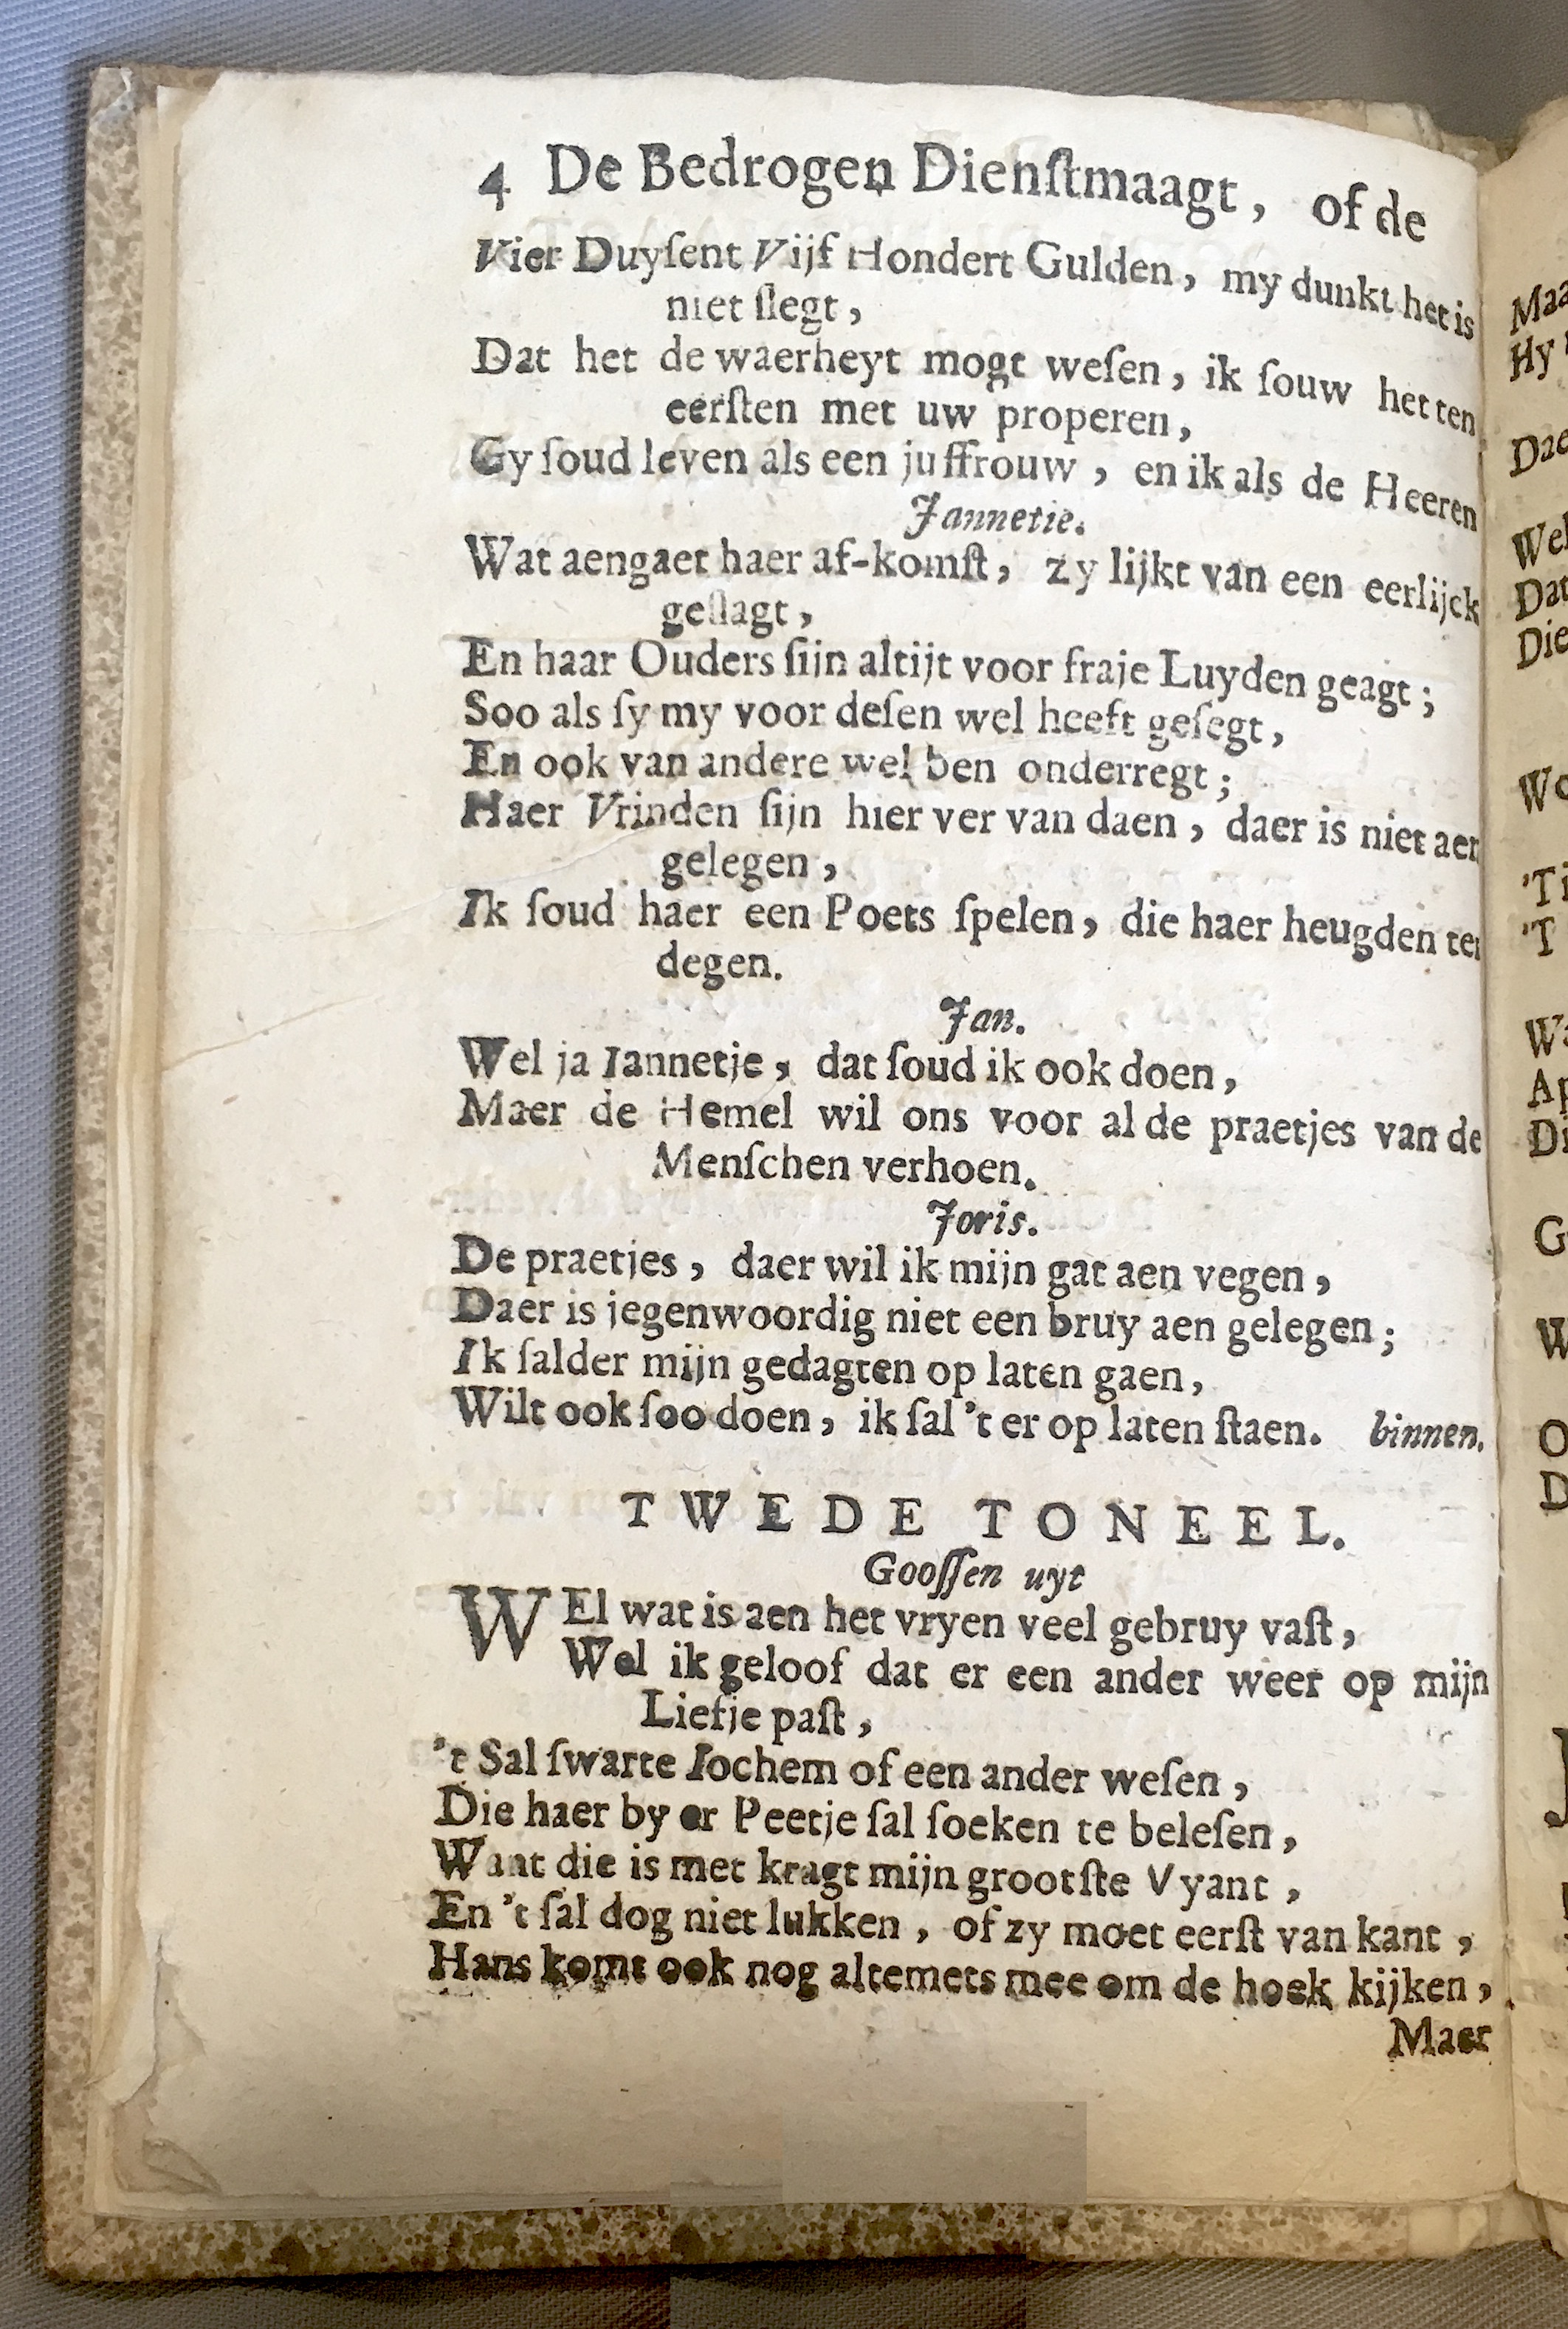 4 De Bedrogen Dienſtmaagt, of de
Vier Duyſent Vijf Hondert Gulden, my dunkt het is
niet ſlegt,
Dat het de waerheyt mogt weſen, ik ſouw het ten
eerſten met uw properen,
Gy ſoud leven als een juffrouw, en ik als de Heeren
Jannetie.
Wat aengaet haer af-komſt, zy lijkt van een eerlijck
geſlagt,
En haar Ouders ſijn altijt voor fraje Luyden geagt;
Soo als ſy my voor deſen wel heeft geſegt,
En ook van andere wel ben onderregt;
Haer Vrinden ſijn hier ver van daen, daer is niet aen
gelegen,
Ik ſoud haer een Poets ſpelen, die haer heugden ten
degen.
Jan.
Wel ja Iannetje, dat ſoud ik ook doen,
Maer de Hemel wil ons voor al de praetjes van de
Menſchen verhoen.
Joris.
De praetjes, daer wil ik mijn gat aen vegen,
Daer is jegenwoordig niet een bruy aen gelegen;
Ik ſalder mijn gedagten op laten gaen,
Wilt ook ſoo doen, ik ſal 't er op laten ſtaen. binnen.
TWEDE TONEEL.
Gooſſen uyt
WEl wat is aen het vryen veel gebruy vaſt,
Wel ik geloof dat er een ander weer op mijn
Liefje paſt,
't Sal ſwarte Iochem of een ander weſen,
Die haer by er Peetje ſal ſoeken te beleſen,
Want die is met kragt mijn grootſte Vyant,
En 't ſal dog niet lukken, of zy moet eerſt van kant,
Hans komt ook nog altemets mee om de hoek kijken,
Maer
Hy
Wel
Dat
Die
'T
G
W
O
D